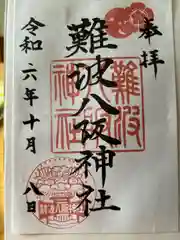 奉拝
難波八阪神社
難波
神社
令和六年十月八日